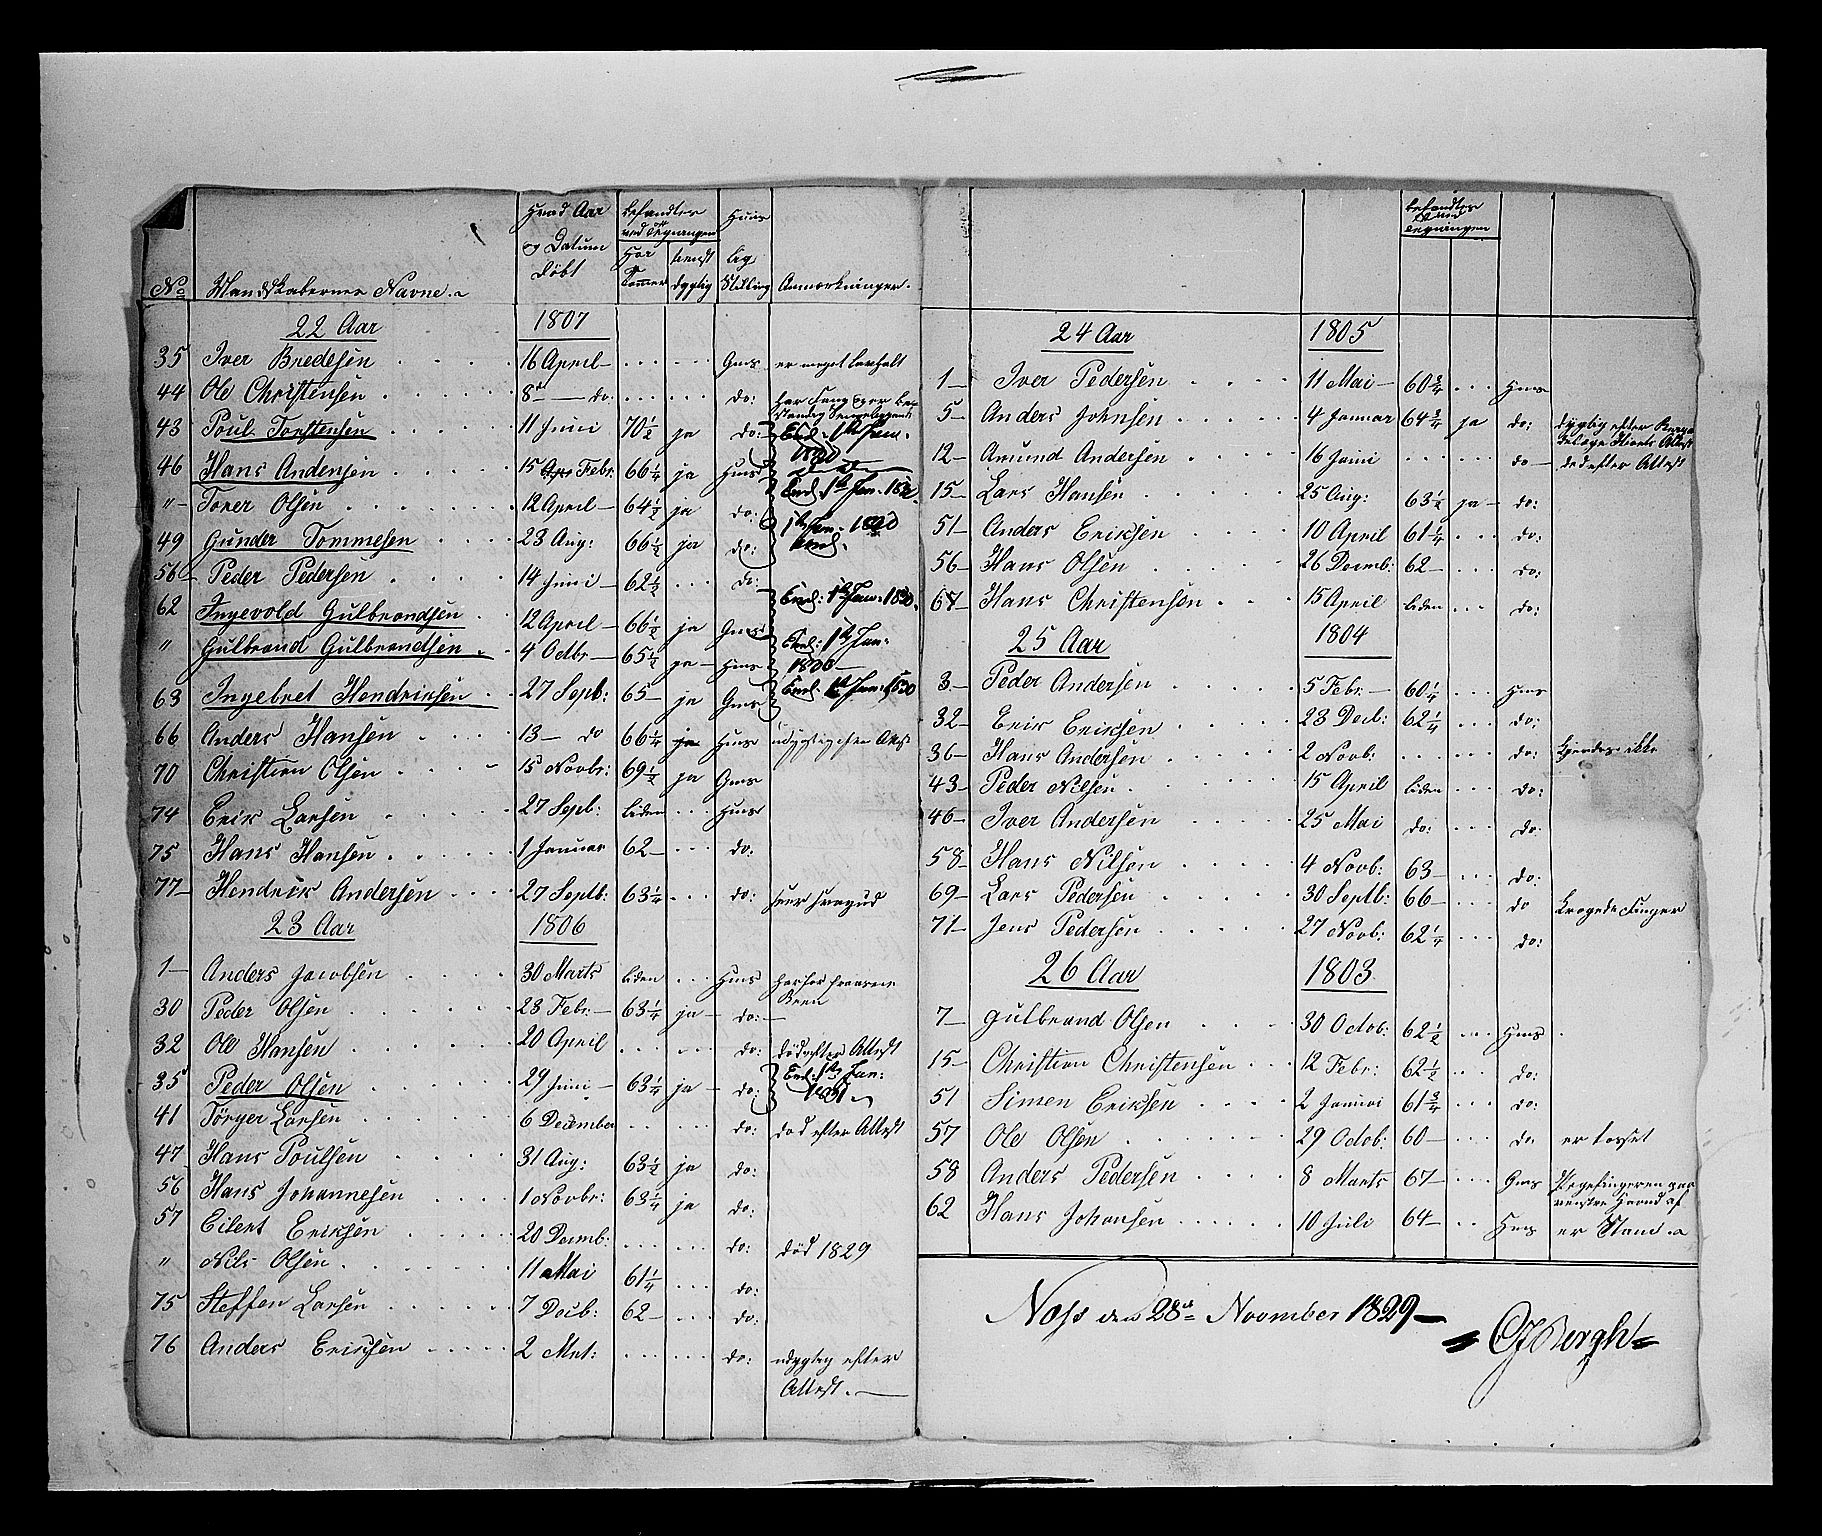 No Mandskabernes Navne. hvad Aar og Datum døbt befandtes ved Tegningen Har Tommer tienst dygtig Huus lig Stilling Anmærkninger.
22 Aar 1807
35 Iver Bredesen 16 April Gms er meget
44 Ole Christensen 8de do. do:
43 Poul Torstensen 11 Juni 70 1/2 ja do: End. 1te Jan. 1830
46 Hans Andersen 15 Apr Febr. 66 1/4 ja Huus
"- Torer Olsen 12 April 64 1/2 ja do: End. 1te Jan. 1830.
49 Gunder Tommesen 23 Aug: 66 1/2 ja do: 1te Jan. 1830 end.
56 Peder Pedersen 14 Juni 62 1/2 do:
62 Ingevold Gulbrandsen 12 April 66 1/2 ja Gms End: 1te Jan. 1830.
" Gulbrand Gulbrandsen 4 Octbr 65 1/2 ja Hms End: 1te Jan: 1830
63 Ingebret Hendriksen 27 Sept: 65 ja Gms End. 1te Jan. 1830
66 Anders Hansen 13 do 66 1/4 ja Hms udygtig efter Attest
70 Christian Olsen 15 Novbr: 69 1/2 ja Gms
74 Erik Larsen 27 Sept: liden Hms
75 Hans Hansen 1 Januar 62 do:
77 Hendrik Andersen 27 Septb: 63 1/4 do:
23 Aar 1806
1 Anders Jacobsen 30 Marts liden Hms har for frossene Been
30 Peder Olsen 28 Febr. 63 1/4 ja do:
32 Ole Hansen 20 April do: død efter Attest
35 Peder Olsen 29 Juni 63 1/4 ja do: End. 1te Jan: 1831
41 Törger Larsen 6 December do: død efter Attest
47 Hans Poulsen 31 Aug: 63 1/2 ja do:
56 Hans Johannesen 1 Novbr: 63 1/4 ja do:
57 Eilert Eriksen 20 Decmb: do: død 1829
" Nils Olsen 11 Mai 61 1/4 do:
75 Steffen Larsen 7 Decb: 62 do:
76 Anders Eriksen 2 Mrt: do: udygtig efter
Attest.
befandtes ved Tegningen
24 Aar 1805
1 Iver Pedersen 11 Mai 60 3/4 Hms
5 Anders Johnsen 4 Januar 64 3/4 ja do: dygtig efter
12 Amund Andersen 16 Juni do død efter Attest
15 Lars Hansen 25 Aug: 63 1/2 ja do:
51 Anders Eriksen 10 April 61 1/4 do:
56 Hans Olsen 26 Decmb: 62 do:
67 Hans Christensen 15 April liden do:
25 Aar 1804
3 Peder Andersen 5 Febr. 60 1/4 Hms
32 Erik Eriksen 23 Decb: 62 1/4 do:
36 Hans Andersen 2 Novb: do: kjendes ikke
43 Peder Nilsen 15 April liden do:
46 Iver Andersen 25 Mai do: do:
58 Hans Nilsen 4 Novb: 63 do:
69 Lars Pedersen 30 Septb: 66 do krogede Finger
71 Jens Pedersen 27 Novb: 62 1/4 do:
26 Aar 1803
7 Gulbrand Olsen 30 Octob: 62 1/2 Hms
15 Christian Christensen 12 Febr: 62 1/2 do:
51 Simen Eriksen 2 Januar 61 3/4 do:
57 Ole Olsen 29 Octob: 60 do er tosset
58 Anders Pedersen 8 Marts 67 Gms Pegefingeren paa venstre Haand af
62 Hans Johansen 10 Juli 64 Hms er
Næss den 28de November 1829
CJ Bergh